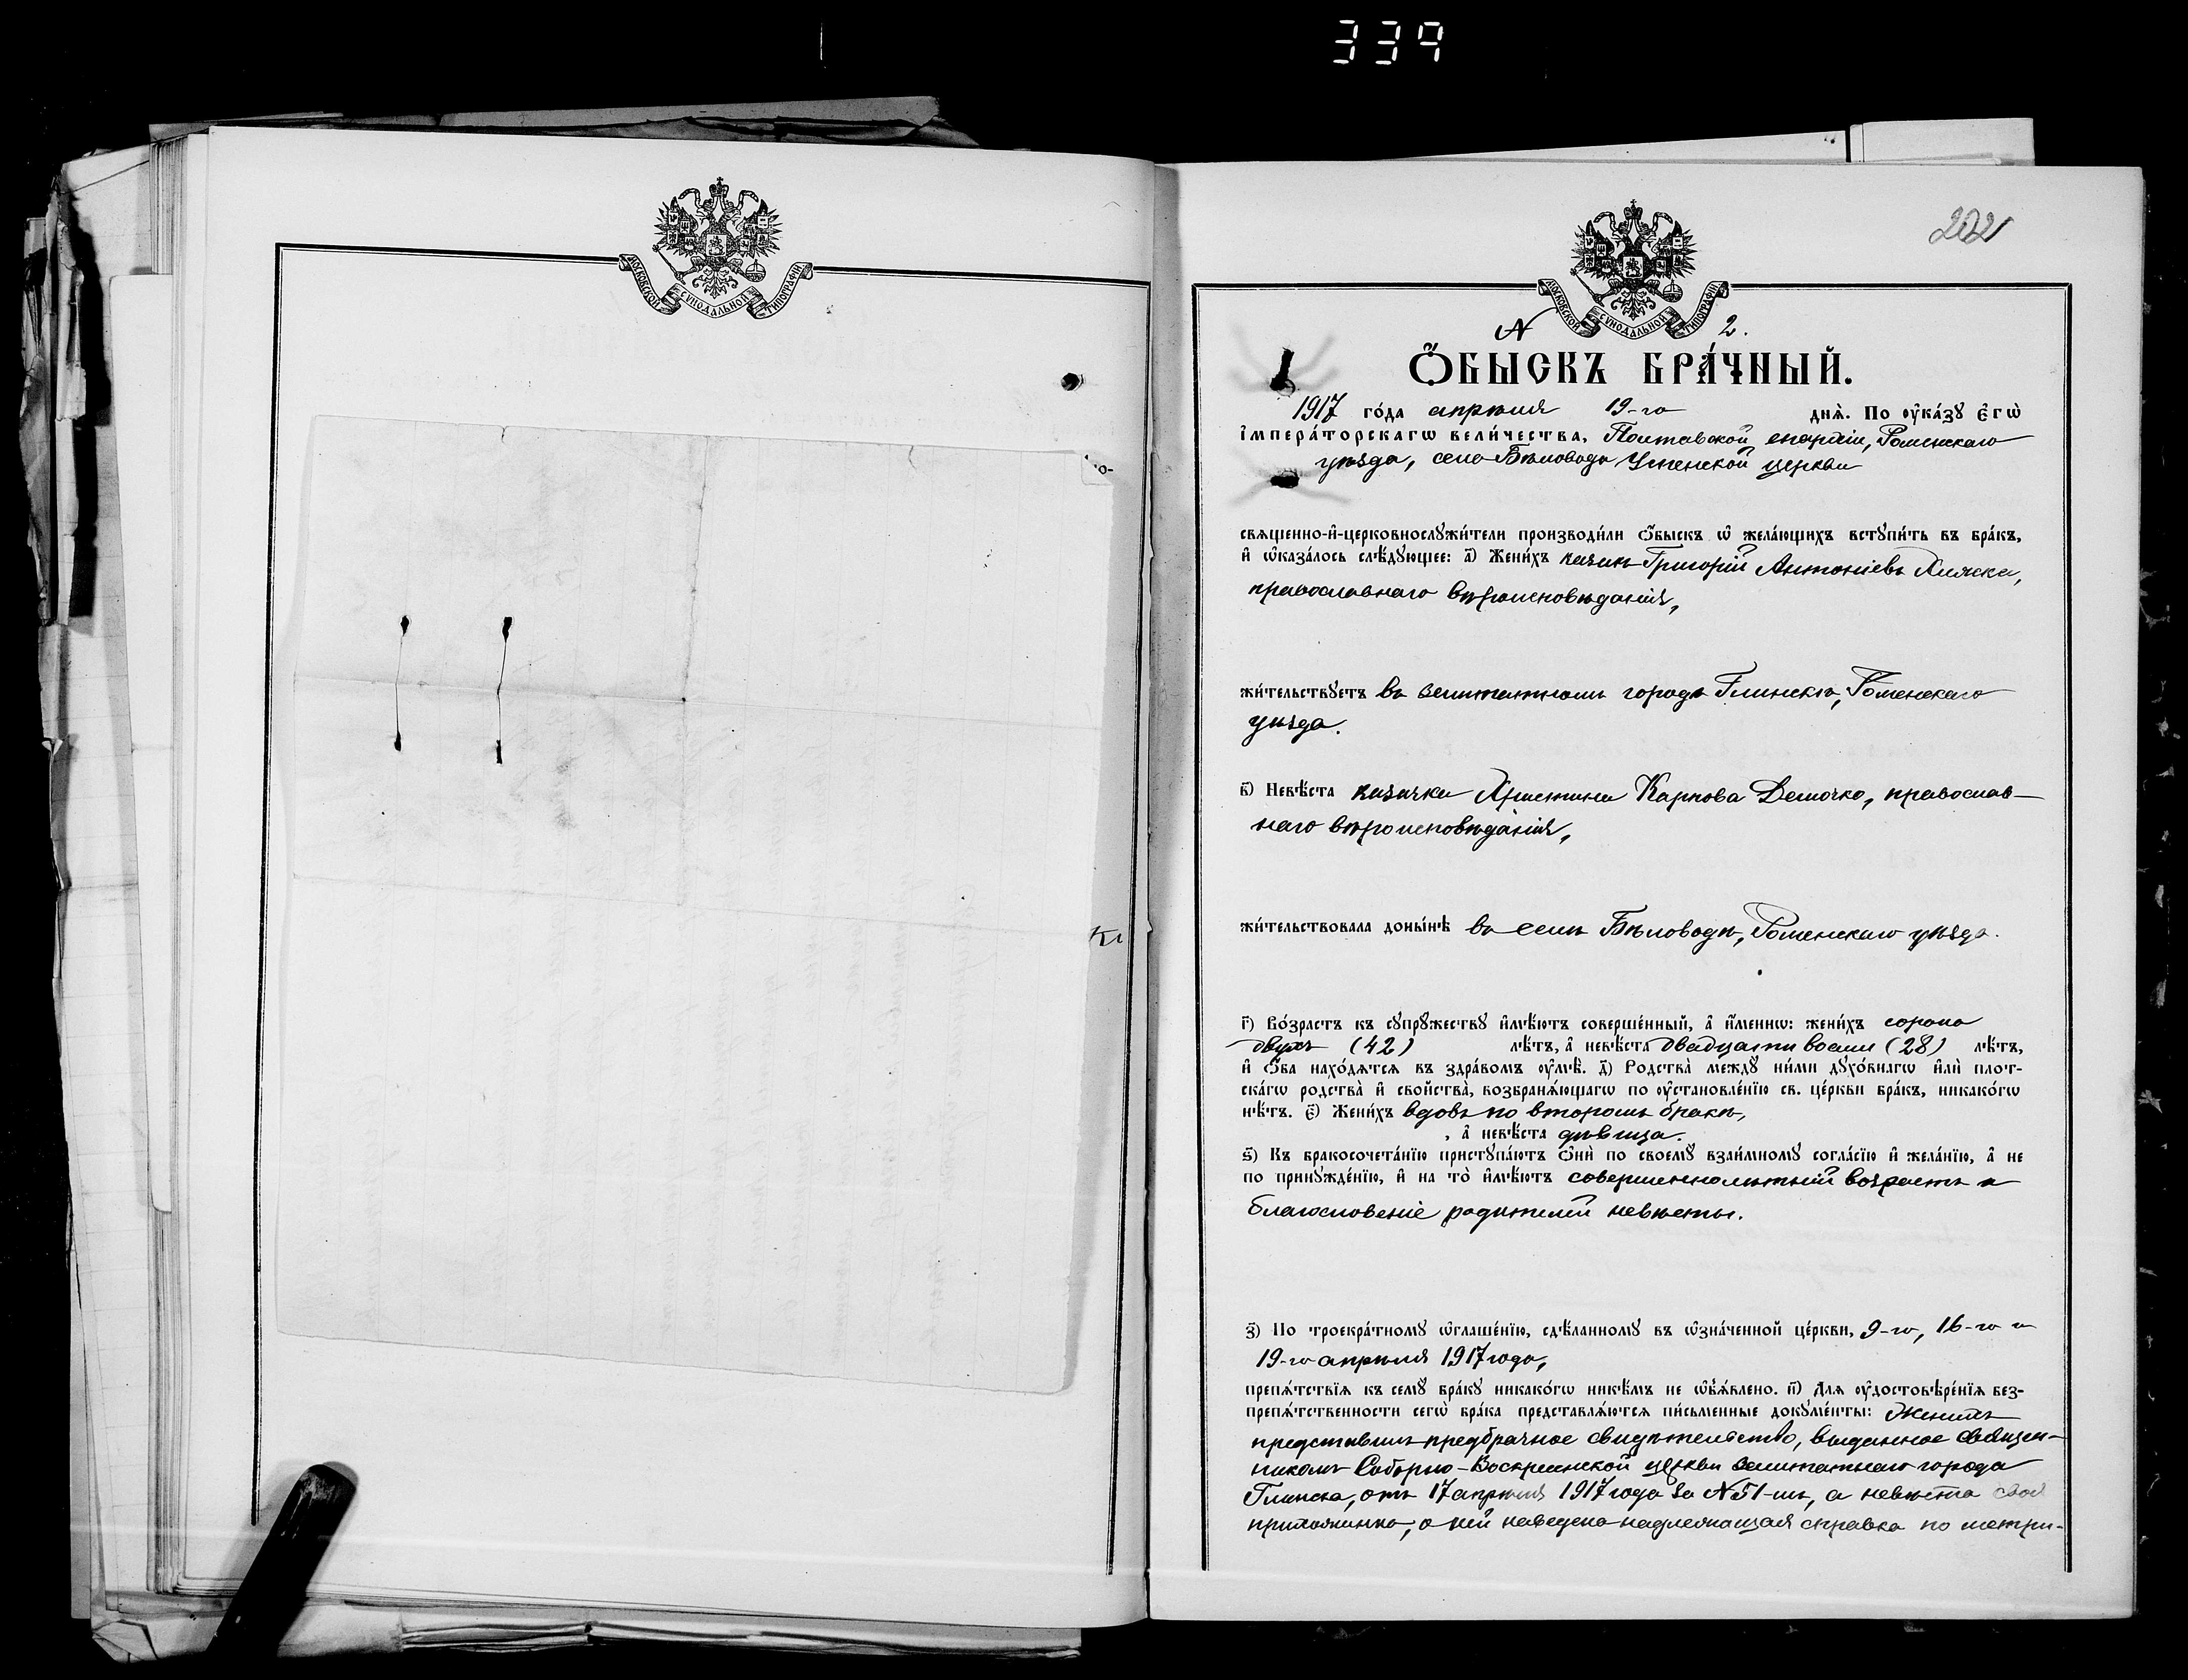 339
МОСКОВСКОЙ СѴНОДАЛЬНОЙ ТИПОГРАФІИ
Кі
202
МОСКОВСКОЙ СѴНОДАЛЬНОЙ ТИПОГРАФІИ
N 2.
Ѻ҆БЫСКЪ БРА́ЧНЫЙ.
1917 го́да апрѣля 19-го днѧ̀. По ᲂу҆ка́зꙋ є҆гѡ̀
і҆мпера́торскагѡ вели́чества, Полтавской епархіи, Роменскаго
уѣзда, села Бѣловода Успенской церкви
свѧщенно-и҆-церковнослꙋжи́тели производи́ли ѻ҆́быскъ ѡ҆ жела́ющихъ встꙋпи́ть въ бра́къ,
и҆ ѡ҆каза́лось слѣ́дꙋющее: а҃) Жени́хъ казакъ Григорій Антоніевъ
православнаго вѣроисповѣданія,
жи́тельствꙋетъ въ заштатномъ городѣ Глинскѣ, Роменскаго
уѣзда.
в҃) Невѣ́ста казачка Христина Карпова Демочко, православ-
наго вѣроисповѣданія,
жи́тельствовала доны́нѣ въ селѣ Бѣловодѣ, Роменскаго уѣзда.
г҃) Во́зрастъ къ сꙋпрꙋ́жествꙋ и҆мѣ́ютъ соверше́нный, а҆ и҆́меннѡ: жени́хъ сорока
двухъ (42) лѣ́тъ, а҆ невѣ́ста двадцати восьми (28) лѣ́тъ,
и҆ ѻ҆́ба нахо́дѧтсѧ въ здра́вомъ ᲂу҆мѣ̀. д҃) Родства̀ междꙋ̀ ни́ми дꙋхо́внагѡ и҆лѝ плот-
ска́гѡ родства̀ и҆ сво́йства̀, возбранѧ́ющагѡ по ᲂу҆становле́нїю св. це́ркви бра́къ, никако́гѡ
нѣ́тъ. є҃) Жени́хъ вдовъ по второмъ бракѣ,
, а҆ невѣ́ста дѣвица.
ѕ҃) Къ бракосочета́нїю пристꙋпа́ютъ ѻ҆нѝ по своемꙋ̀ взаи́мномꙋ согла́сїю и҆ жела́нїю, а҆ не
по принꙋжде́нїю, и҆ на то̀ и҆мѣ́ютъ совершеннолѣтній возрастъ и
благословеніе родителей невѣсты.
з҃) По троекра́тномꙋ ѡ҆глаше́нїю, сдѣ́ланномꙋ въ ѡ҆зна́ченной це́ркви, 9-го, 16-го и
19-го апрѣля 1917 года,
препѧ́тствїѧ къ семꙋ̀ бра́кꙋ никако́гѡ никѣ́мъ не ѡ҆б̾ѧ́влено. и҃) Длѧ ᲂу҆достовѣре́нїѧ без-
препѧ́тственности сегѡ̀ бра́ка представлѧ́ютсѧ пи́сьменные докꙋме́нты: Женихъ
представилъ предбрачное свидѣтельство, выданное священ-
никомъ Соборно-Воскресенской церкви заштатнаго города
Глинска, отъ 17 апрѣля 1917 года за N 51-мъ, а невѣста своя
прихожанка, о ней наведена надлежащая справка по метри-